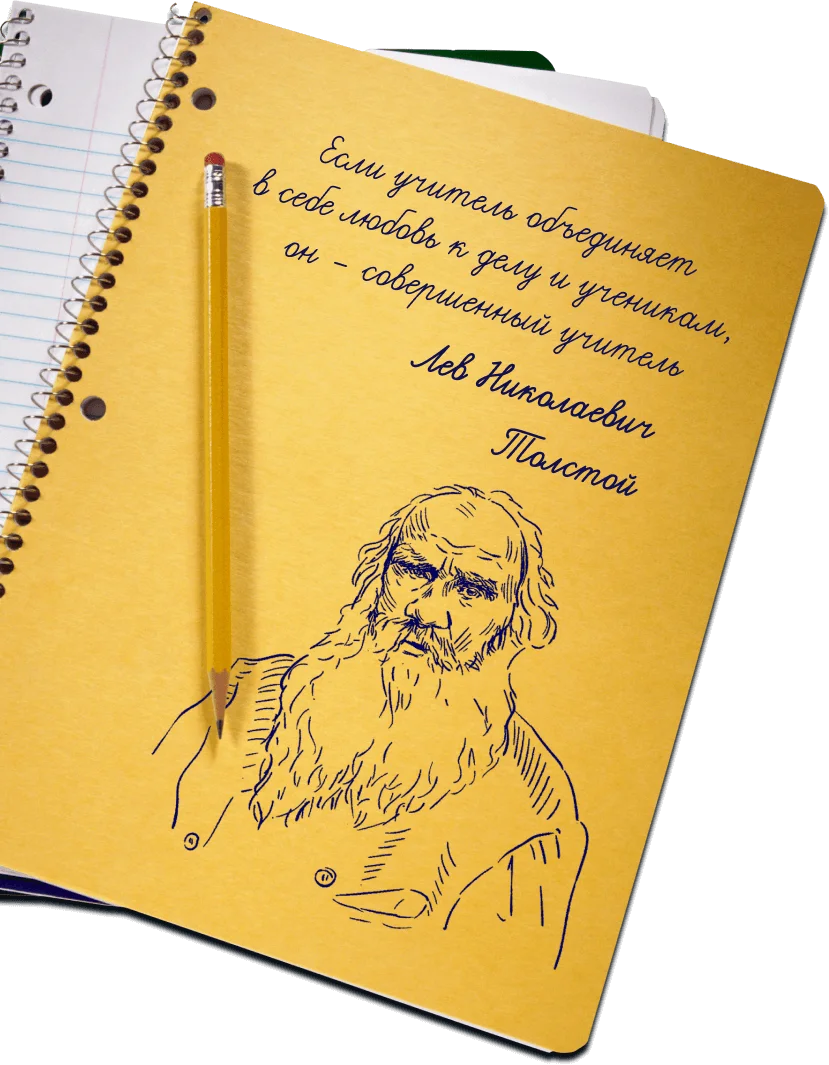 Если учитель объединяет
в себе любовь к делу и ученикам,
он - совершенный учитель
Лев Николаевич
Толстой